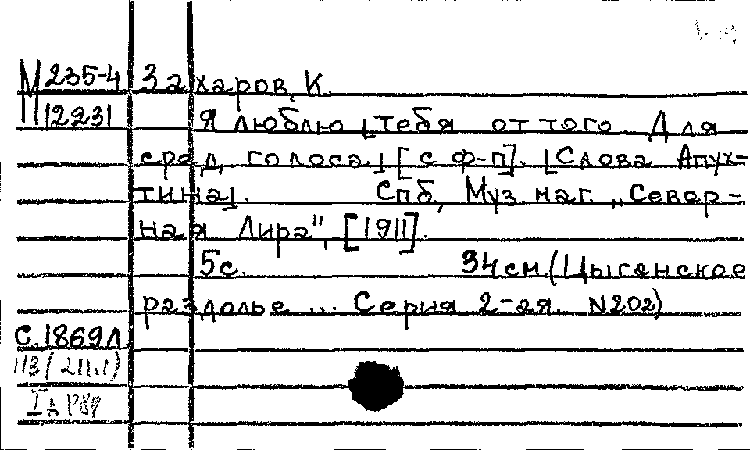 М 235-4 Захаров, К.
12231 Я люблю [тебя от того Для
сред. голоса.] [с ф-п]. [Слова Апух-
тина]. Спб, Муз. маг. „Север-
ная Лира", [1911].
5с. 34 см. (Цыганское
раздолье ... Серия 2-ая. N202)
С.1869л